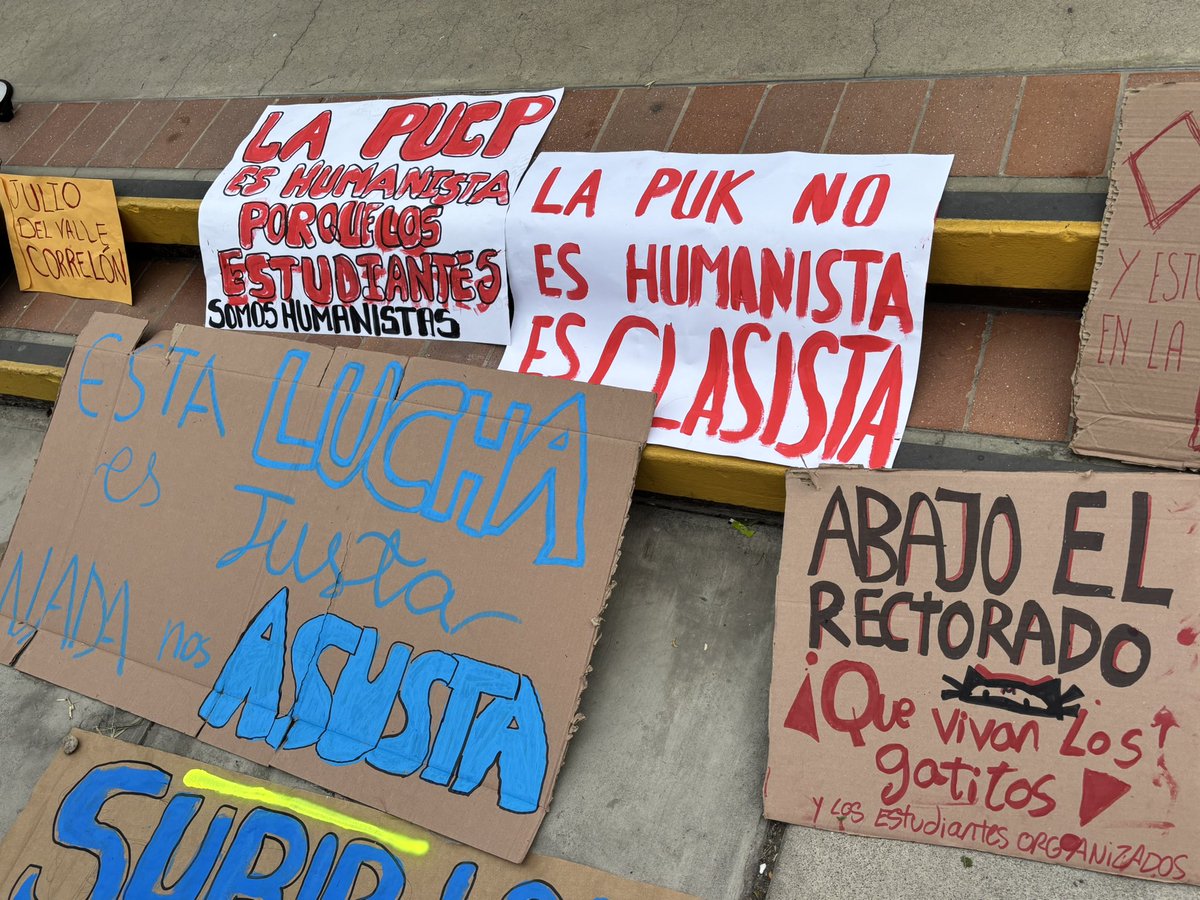 LA PUCP
ES HUMANISTA
PORQUE LOS
ESTUDIANTES
SOMOS HUMANISTAS
LA PUK NO
ES HUMANISTA
ES CLASISTA
JULIO
DEL VALLE
CORRELÓN
Y EST
EN LA
ESTA LUCHA
es Justa
NADA nos ASUSTA
ABAJO EL
RECTORADO
¡Que vivan Los
gatitos!
Y LOS EStUDIANtES ORGANIZADOS
SUBIR LA